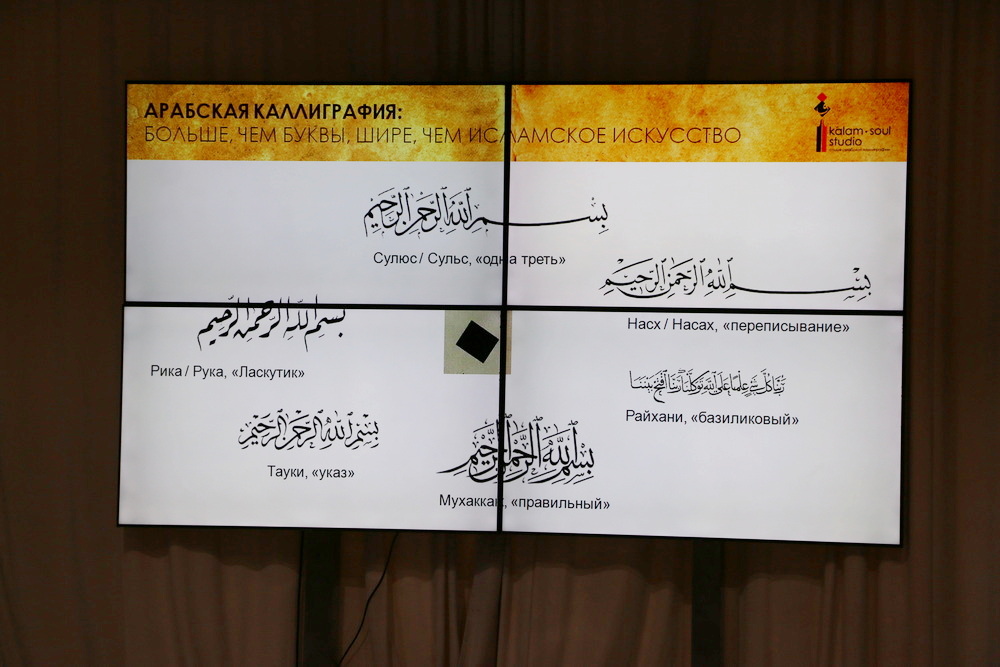 АРАБСКАЯ КАЛЛИГРАФИЯ:
БОЛЬШЕ, ЧЕМ БУКВЫ, ШИРЕ, ЧЕМ ИСЛАМСКОЕ ИСКУССТВО
kalam-soul
studio
بسم الله الرحمن الرحيم
Сулюс / Сульс, «одна треть»
بسم الله الرحمن الرحيم
Насх / Насах, «переписывание»
بسم الله الرحمن الرحيم
Рика / Рука, «Ласкутик»
Райхани, «базиликовый»
بسم الله الرحمن الرحيم
Тауки, «указ»
بسم الله الرحمن الرحيم
Мухаккак, «правильный»